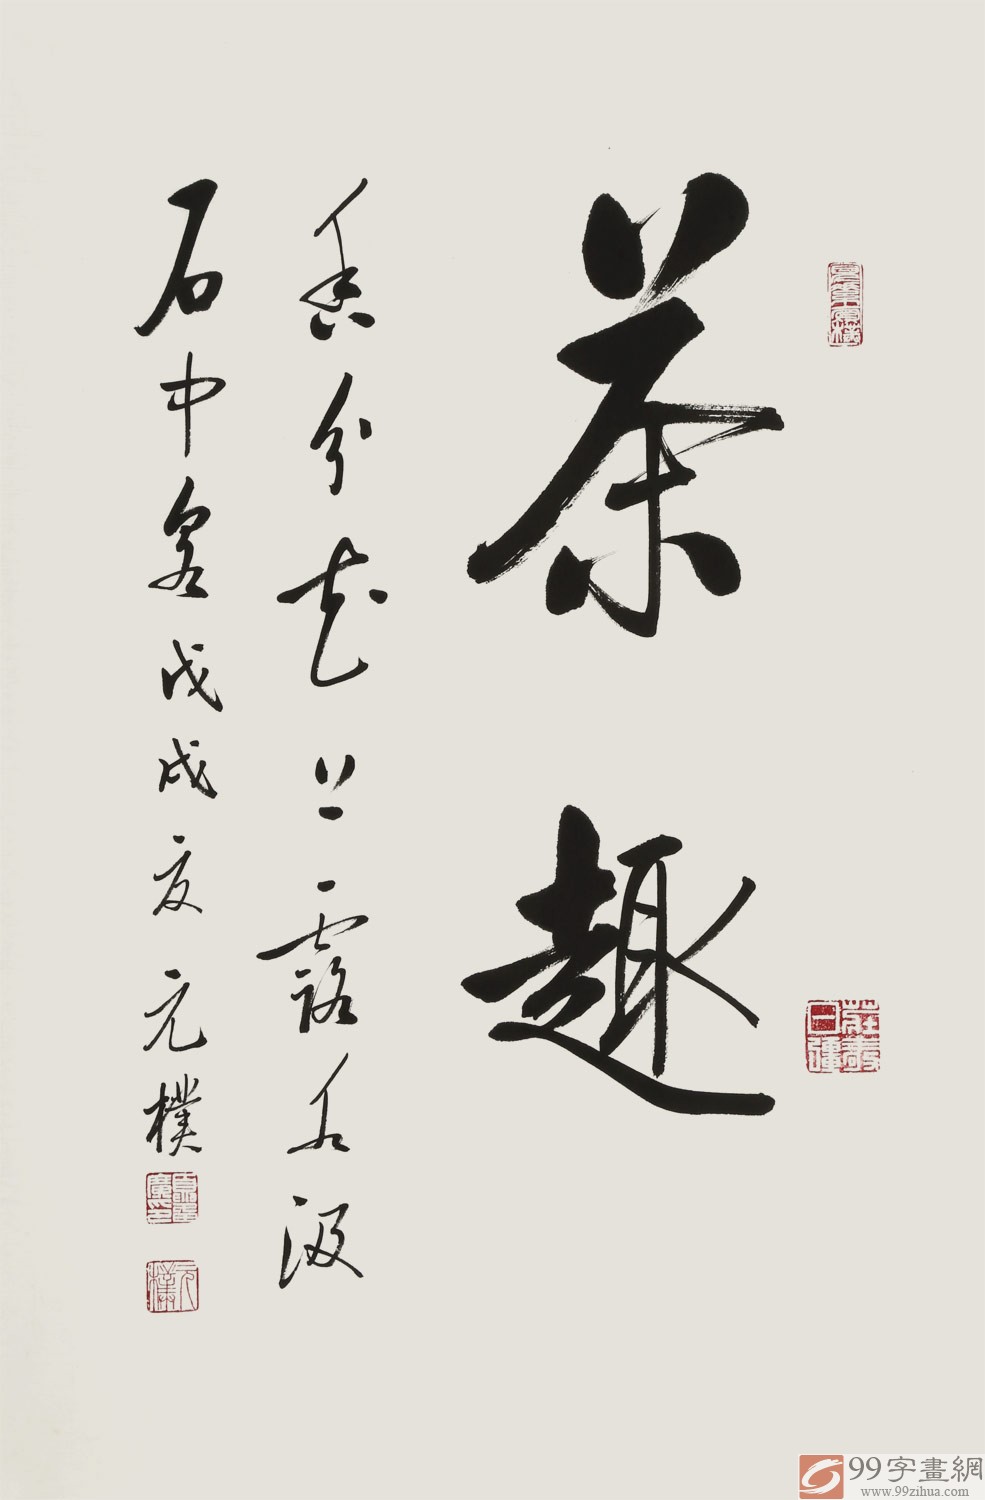 茶趣
香分花上露水汲
石中泉戊戌夏元樸
元樸
99字畫網
www.99zihua.com